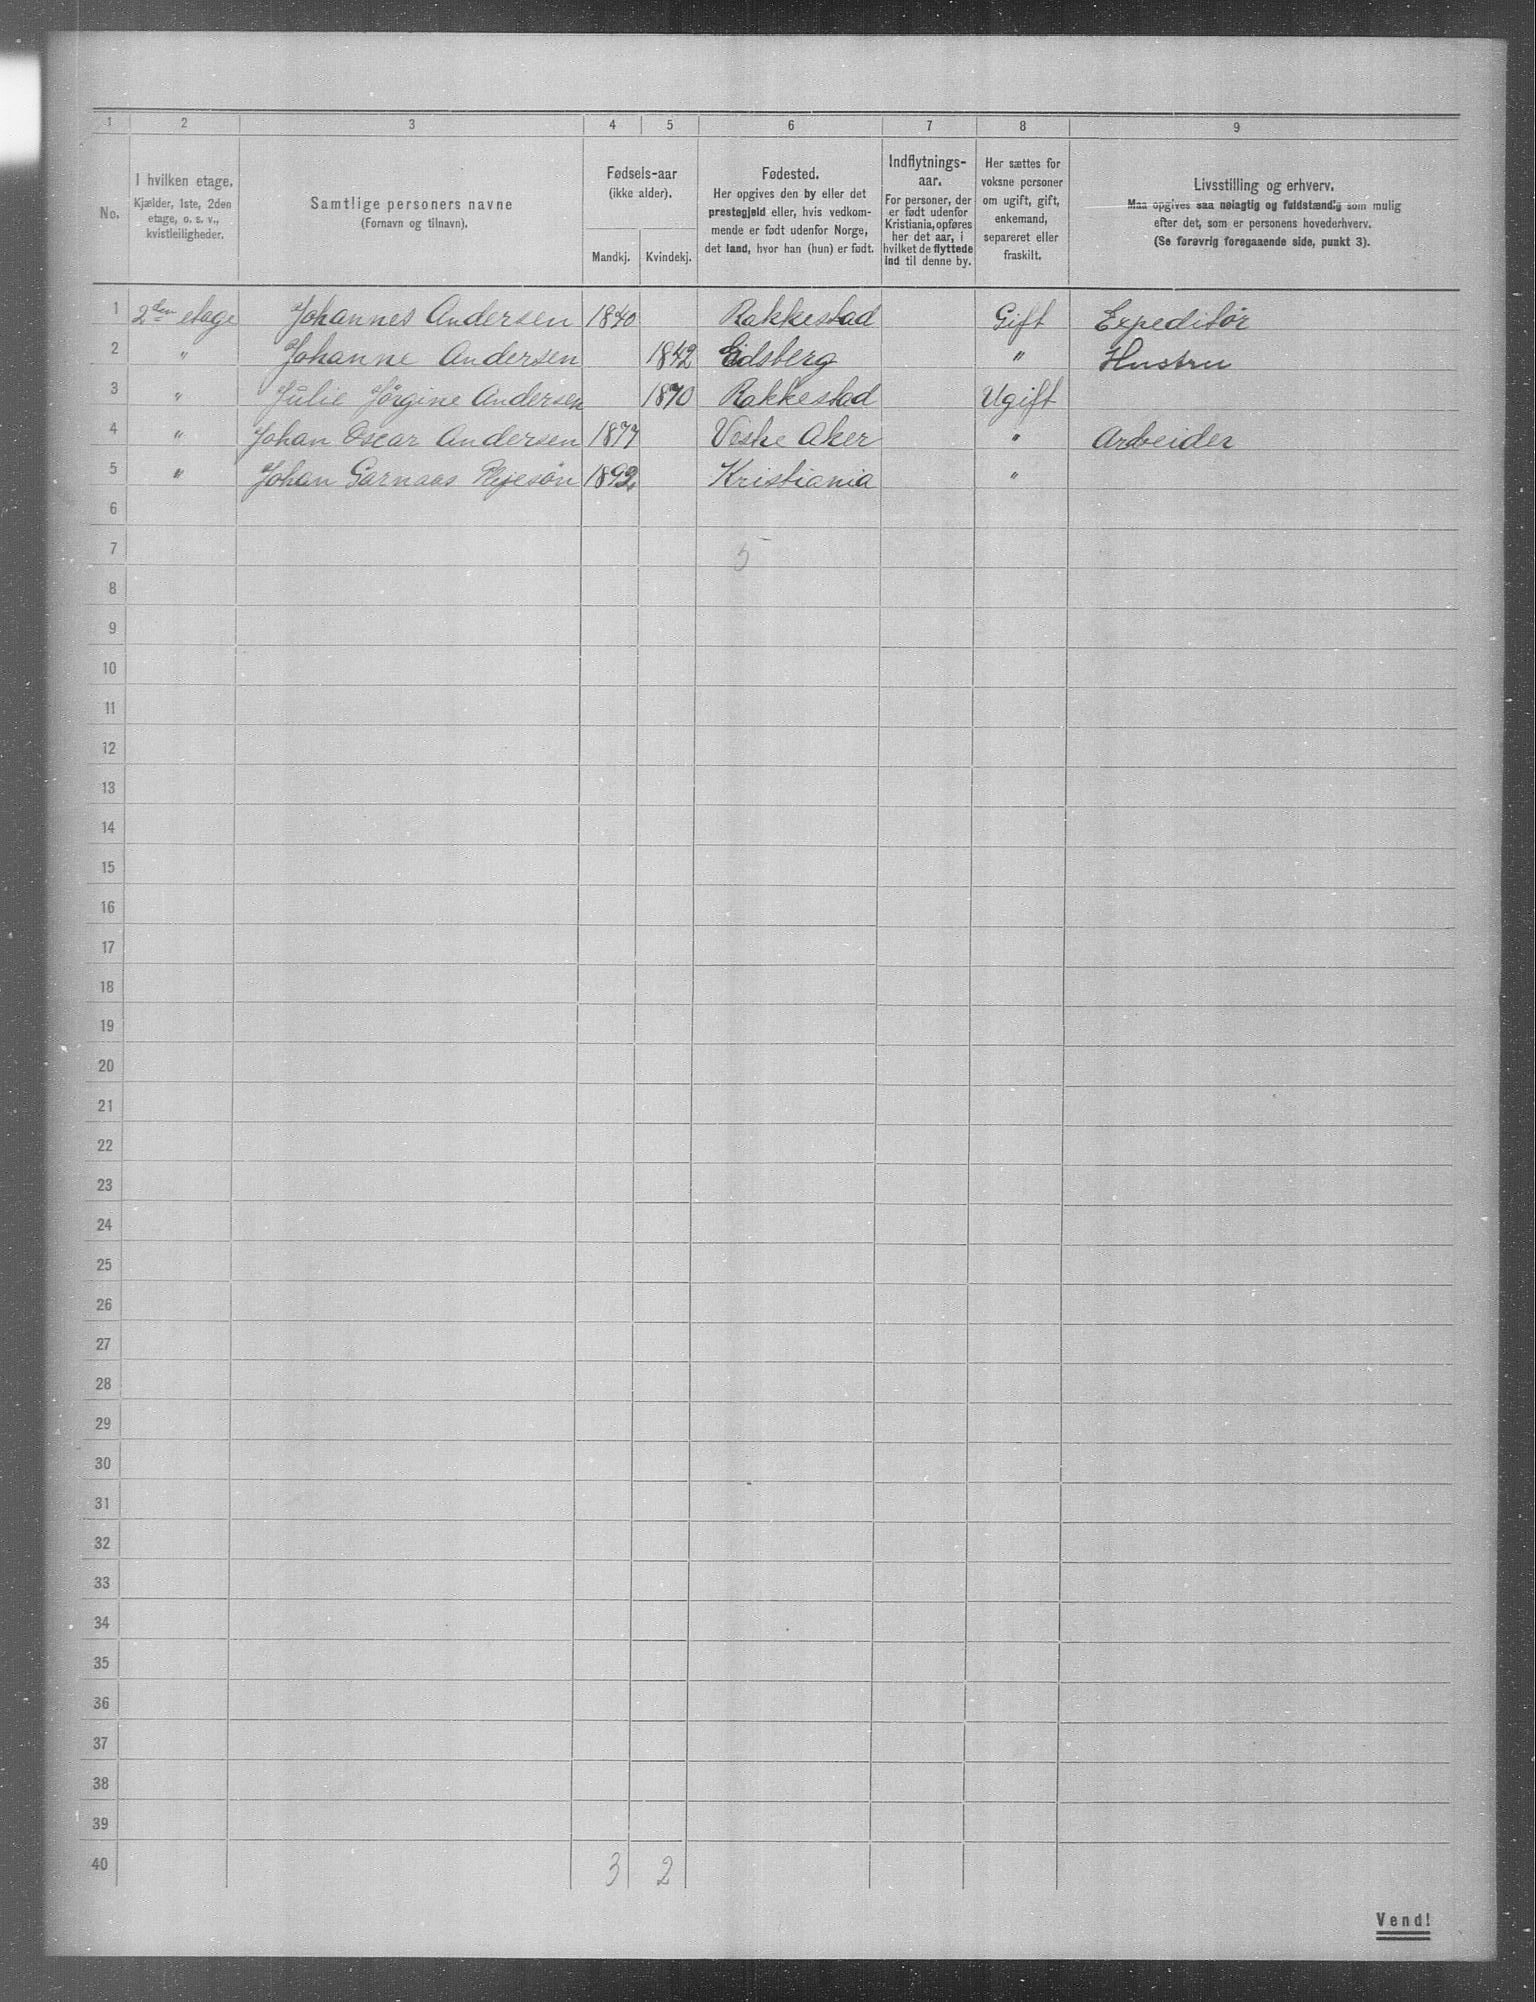 1 2 3 4 5 6 7 8 9
No.
I hvilken etage.
Kjælder, 1ste, 2den
etage, o. s. v.,
kvistleiligheder.
Samtlige personers navne
(Fornavn og tilnavn).
Fødsels-aar
(ikke alder).
Mandkj. Kvindekj.
Fødested.
Her opgives den by eller det
prestegjeld eller, hvis vedkom-
mende er født udenfor Norge,
det land, hvor han (hun) er født.
Indflytnings-
aar.
For personer, der
er født udenfor
Kristiania, opføres
her det aar, i
hvilket de flyttede
ind til denne by.
Her sættes for
voksne personer
om ugift, gift,
enkemand,
separeret eller
fraskilt.
Livsstilling og erhverv.
Maa opgives saa nøiagtig og fuldstændig som mulig
efter det, som er personens hovederhverv.
(Se forøvrig foregaaende side, punkt 3).
1 2den etage Johannes Andersen 1840 Rakkestad Gift Expeditør
2 " Johanne Andersen 1842 Eidsberg " Hustru
3 " Julie Jørgine Andersen 1870 Rakkestad Ugift
4 " Johan Oscar Andersen 1877 Vestre Aker " Arbeider
5 " Johan Garnaas 1892 Kristiania "
6
7 5
8
9
10
11
12
13
14
15
16
17
18
19
20
21
22
23
24
25
26
27
28
29
30
31
32
33
34
35
36
37
38
39
40 3 2
Vend!